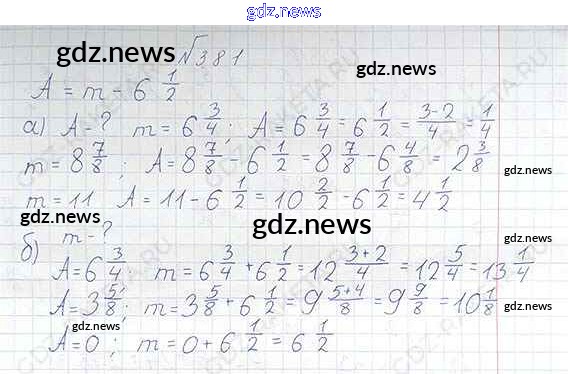 gdz.news
gdz.news №381
A = m - 6 1/2
а) A - ? m = 6 3/4; A = 6 3/4 = 6 1/2 = (3-2)/4 = 1/4
m = 8 7/8; A = 8 7/8 - 6 1/2 = 8 7/8 - 6 4/8 = 2 3/8 gdz.news
m = 11 A = 11 - 6 1/2 = 10 2/2 - 6 1/2 = 4 1/2
gdz.news gdz.news
б) m - ?
A = 6 3/4 m = 6 3/4 + 6 1/2 = 12 (3+2)/4 = 12 5/4 = 13 1/4
A = 3 5/8; m = 3 5/8 + 6 1/2 = 9 (5+4)/8 = 9 9/8 = 10 1/8 gdz.news
gdz.news
A = 0; m = 0 + 6 1/2 = 6 1/2
gdz.news